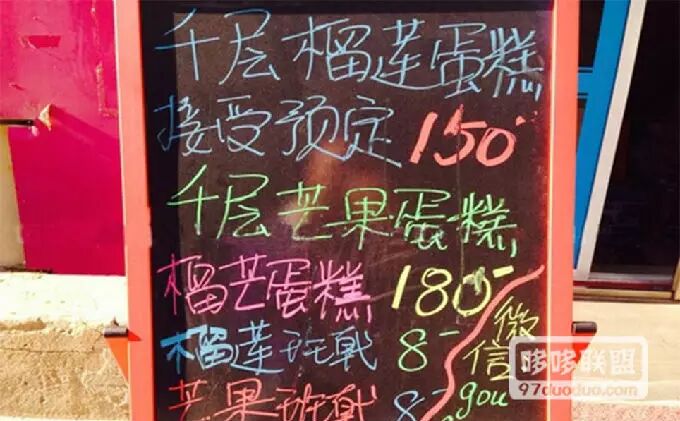 千层榴莲蛋糕
接受预定 150
千层芒果蛋糕
榴芒蛋糕 180-
榴莲班戟 8-
芒果班戟 8-
微信
gou
哆哆联盟
97duoduo.com